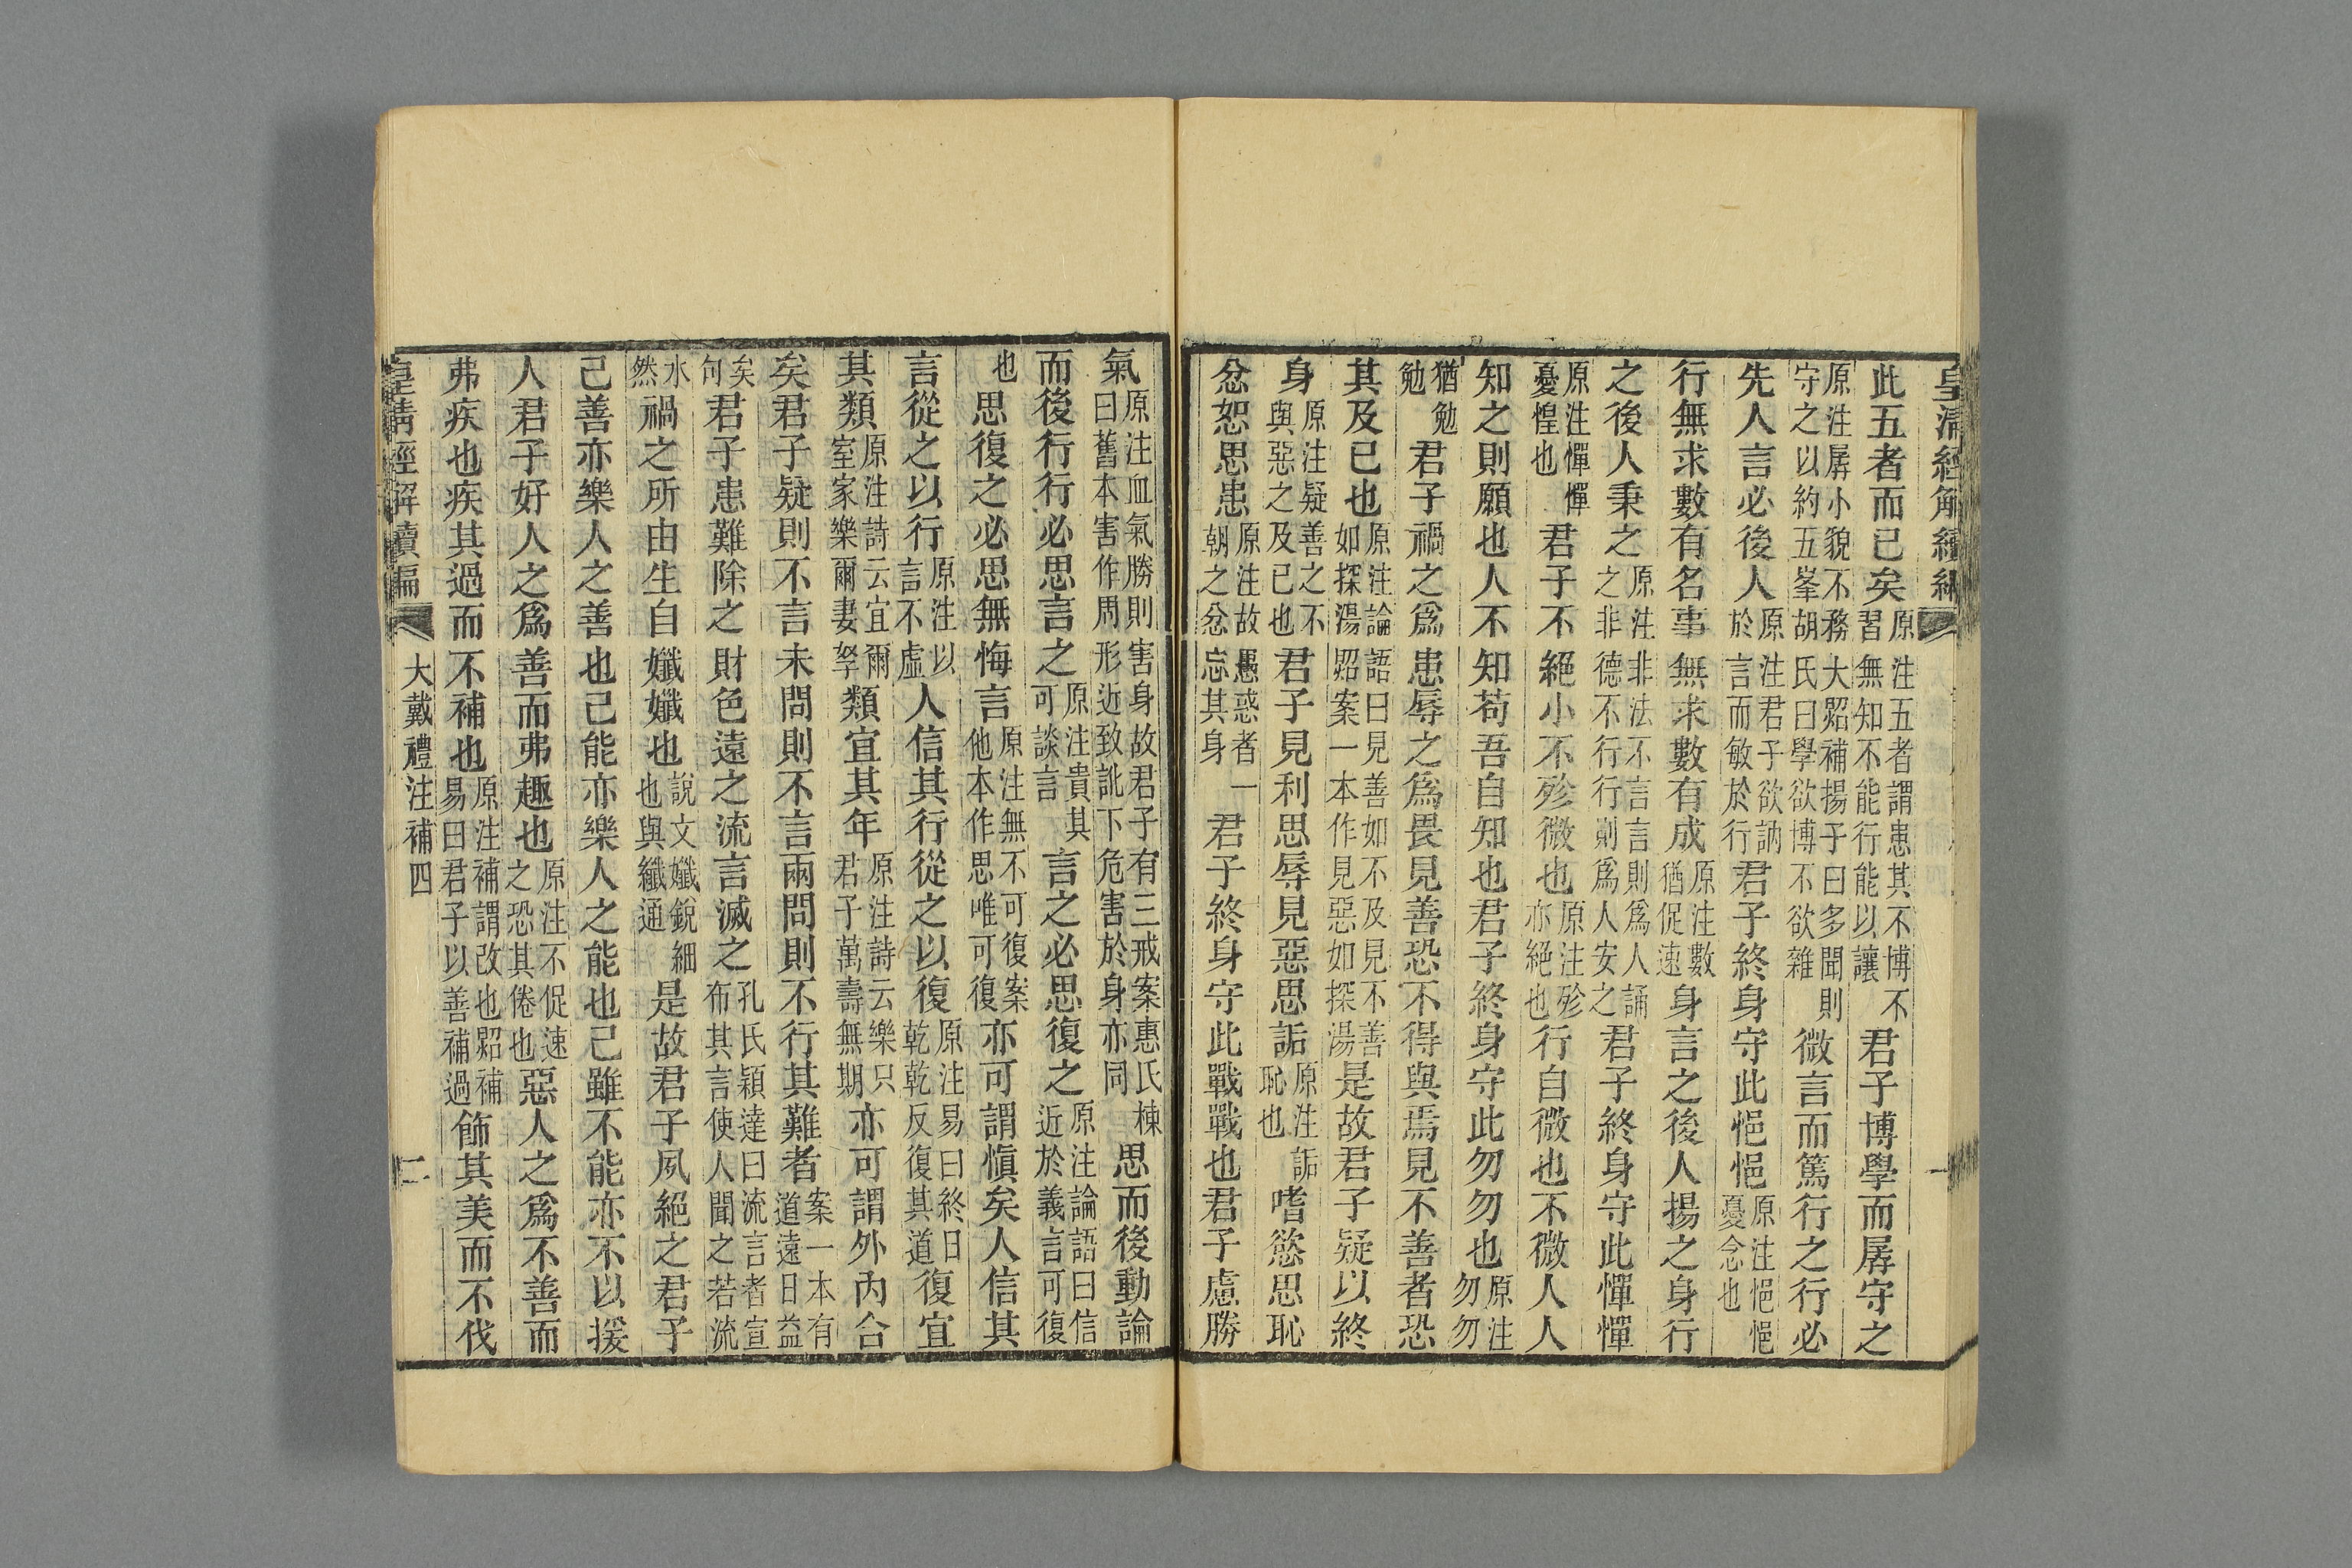 皇清經解續編 一
此五者而已矣原注五者謂患其不博不習無知不能行能以讓君子博學而孱守之
原注孱小貌不務大照補揚子曰多聞則守之以約五峯胡氏曰學欲博不欲雜微言而篤行之行必
先人言必後人原注君子欲訥於言而敏於行君子終身守此悒悒原注悒悒憂念也
行無求數有名事無求數有成原注數猶促速身言之後人揚之身行
之後人秉之原注非法不言言則爲人誦之非德不行行則爲人安之君子終身守此憚憚
原注憚憚憂惶也君子不絕小不殄微也原注殄亦絕也行自微也不微人人
知之則願也人不知苟吾自知也君子終身守此勿勿也原注勿勿
猶勉勉君子禍之爲患辱之爲畏見善恐不得與焉見不善者恐
其及已也原注論語曰見善如不及見不善如探湯照案一本作見惡如探湯是故君子疑以終
身原注疑善之不與惡之及已也君子見利思辱見惡思詬原注詬恥也嗜慾思恥
忿恕思患原注故愚惑者一朝之忿忘其身君子終身守此戰戰也君子慮勝
氣原注血氣勝則害身故君子有三戒案惠氏棟曰舊本害作周形近致訛下危害於身亦同思而後動論
而後行行必思言之原注貴其可談言言之必思復之原注論語曰信近於義言可復
也思復之必思無悔言原注無不可復案他本作思唯可復亦可謂愼矣人信其
言從之以行原注以言不虛人信其行從之以復原注易曰終日乾乾反復其道復宜
其類原注詩云宜爾室家樂爾妻孥類宜其年原注詩云樂只君子萬壽無期亦可謂外內合
矣君子疑則不言未問則不言兩問則不行其難者案一本有道遠日益
矣句君子患難除之財色遠之流言滅之孔氏穎達曰流言者宣布其言使人聞之若流
水然禍之所由生自孅孅也說文孅銳細也與纖通是故君子夙絕之君子
己善亦樂人之善也己能亦樂人之能也己雖不能亦不以援
人君子好人之爲善而弗趣也原注不促速之恐其倦也惡人之爲不善而
弗疾也疾其過而不補也原注補謂改也照補易曰君子以善補過飾其美而不伐
皇清經解續編 大戴禮注補四 二